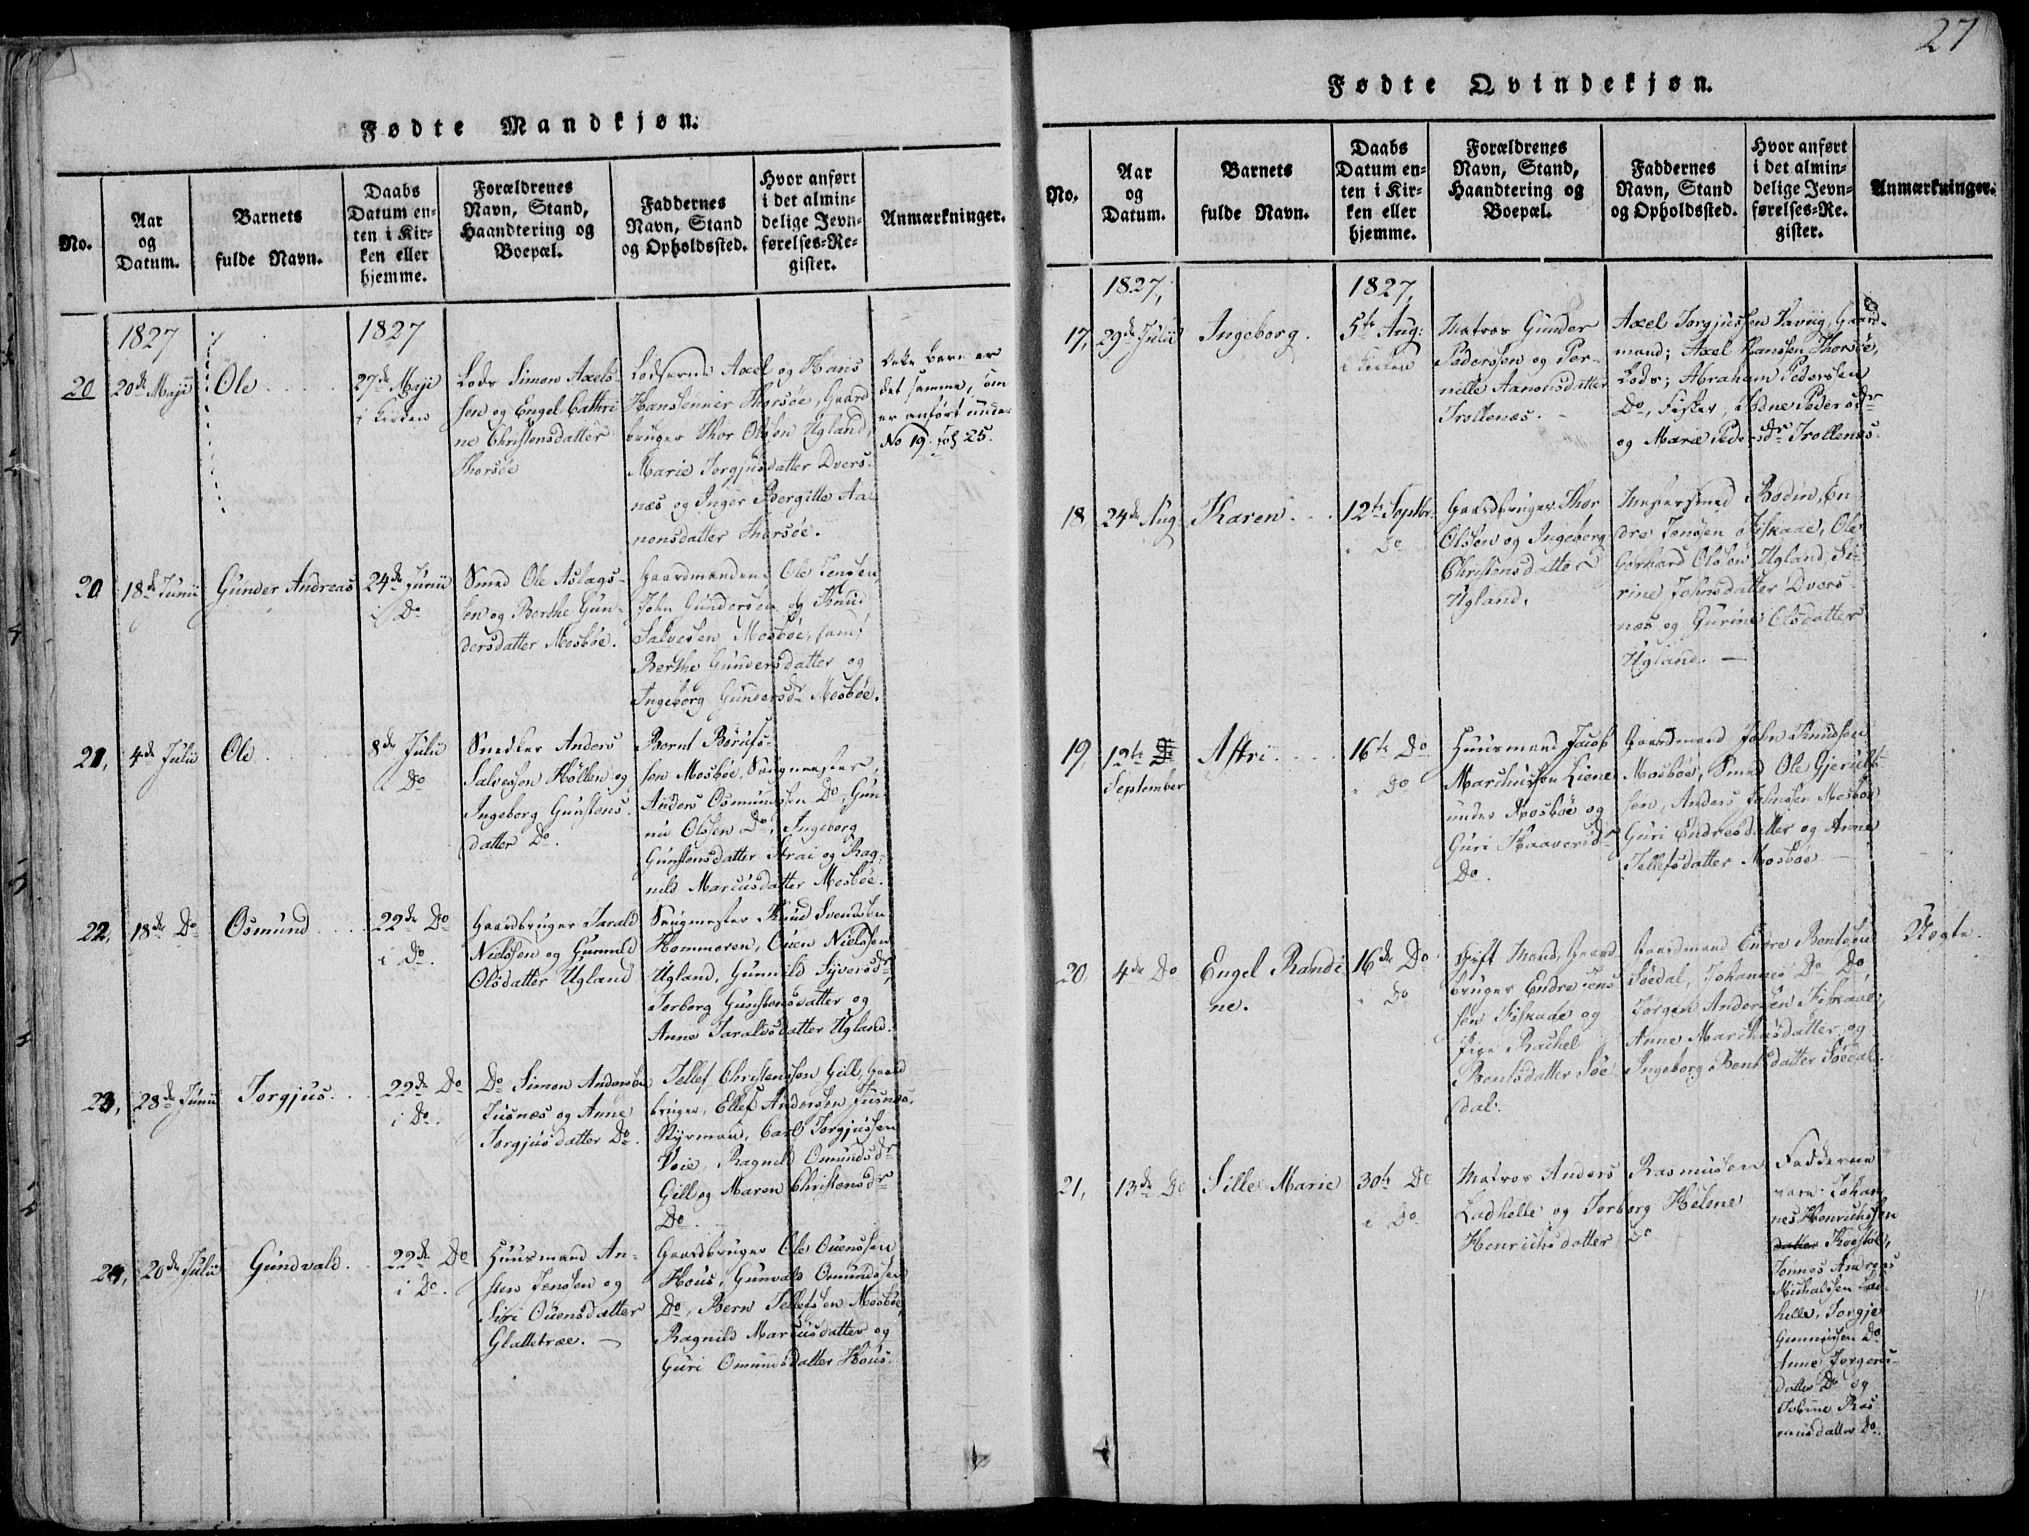 27
Fødte Mandkjøn.
No.
Aar
og
Datum.
Barnets
fulde Navn.
Daabs
Datum en-
ten i Kir-
ken eller
hjemme.
Forældrenes
Navn, Stand,
Haandtering og
Boepæl.
Faddernes
Navn, Stand
og Opholdssted.
Hvor anført
i det almin-
delige Jevn-
førelses-Re-
gister.
Anmærkninger.
1827
1827
20
20de Maji
Ole
27de Maji
i Kirken
Lods Simon Axels-
sen og Engel Cathri
ne Christensdatter
Thorsøe
Lodserne Axel og Hans
Hanssenner Thorsøe, Gaard
bruger Thor Olssen Ugland,
Marie Torgjusdatter Dvers-
næs og Inger Bergitte Aa-
nonsdatter Thorsøe.
Dette barn er
det samme, som
er anført under
No 19. fol 25.
20
18de Junii
Gunder Andreas
24de Junii
i Do
Smed Ole Aslags-
sen og Berthe Gun-
dersdatter Mosbøe.
Gaardmændene Ole Jensen,
John Gundersen og Knud
Salvesen Mosbøe, samt
Berthe Gundersdatter og
Ingeborg Gundersdr Mosbøe.
21,
4de Julii
Ole
8de Julii
i Do
Snedker Anders
Salvesen Hollen og
Ingeborg Gunstens-
datter Do.
Bernt Børufs-
sen Mosbøe, Saugmester,
Anders Osmundssen Do, Gun-
nu Olssen Do, Ingeborg
Gunstensdatter Strai og Rag-
nild Marcusdatter Mosbøe.
22,
18de Do
Osmund
22de Do
i Do.
Gaardbruger Tarald
Nielssen og Gunnild
Olsdatter Ugland
Saugmester Knud Svendsen
Hommeren, Ouen Nielssen
Ugland, Gunnild Syversdr,
Torborg Gunstensdatter og
Anne Taraldsdatter Ugland.
23,
28de Junii
Torgjus
22de Do
i Do.
Do Simon Andersen
Fusnæs og Anne
Torgjusdatter Do.
Tellef Christenssen Gill, Gaard
bruger, Ellef Andersen Fusnæs,
Styrmand, Carl Torgjussen
Voie, Ragnild Omundsdr
Gill og Maren Christensdr
Do.
24,
20de Julii
Gundvald
22de Do
i Do.
Huusmand An-
sten Jenssen og
Siri Ouensdatter
Glattetræe.
Gaardbruger Ole Ouenssen
Hous, Gunvald Omundssen
Do, Bern Tellefssen Mosbøe,
Ragnild Marcusdatter og
Guri Omundsdatter Hous.
Fødte Qvindekjøn.
No.
Aar
og
Datum.
Barnets
fulde Navn.
Daabs
Datum en-
ten i Kir-
ken eller
hjemme.
Forældrenes
Navn, Stand,
Haandtering og
Boepæl.
Faddernes
Navn, Stand
og Opholdssted.
Hvor anført
i det almin-
delige Jevn-
førelses-Re-
gister.
Anmærkninger.
1827,
1827,
17,
29de Julii
Ingeborg.
5te Aug:
i Kirken
Matros Gunder
Pederssen og Per-
nille Aanonsdatter
Trollenæs.
Axel Torgjussen Vavrig, Gaard-
mand; Axel Hanssen Thorsøe,
Lods; Abraham Pedersen
Do, Fisker, Pedersdr
og Marie Pedersdr Trollenæs.
18
24de Aug
Karen
12te Septbr.
i Do
Gaardbruger Thor
Olssen og Ingeborg
Christensdatter
Ugland.
Mestersmed Bodin, En-
dre Jensen Fiskaae, Ole
Gerhard Olssen Ugland, Si-
rine Johnsdatter Dvers-
næs og Gurine Olsdatter
Ugland.
19,
12te
September
Astri
16te Do
i Do
Huusmand Jacob
Marchussen Liene
under Mosbøe og
Guri Haaversdr
Do.
Gaardmand John Knudsen
Mosbøe, Smed Ole Gjerulf-
sen, Anders Johnssen Mosbøe
Guri Endresdatter og Anne
Tellefsdatter Mosbøe
20,
4de Do
Engel Randi
ne.
16de Do
i Do
Gift Mand, Gaard
bruger Endre Jens
sen Fiskaae og
Pige Rachel
Bentsdatter Søe-
dal.
Gaardmand Endre Bentsen
Søedal, Johannes Do Do,
Jørgen Andersen Fiskaae,
Anne Marchusdatter og
Ingeborg Bentsdatter Søedal.
Uægte.
21,
13de Do
Sille Marie
30te Do
i Do
Matros Anders Rasmussen
Ladhelle og Torborg Helene
Henrichsdatter Do
Fadderne
vare: Johan-
nes Henrichssen
datter Roesbøe,
Tønnes Andreas
Michalssen Lad-
helle, Torgje
Gunnussen Do
Anne Jørgens-
datter Do og
Tobine Ras
musdatter Do.